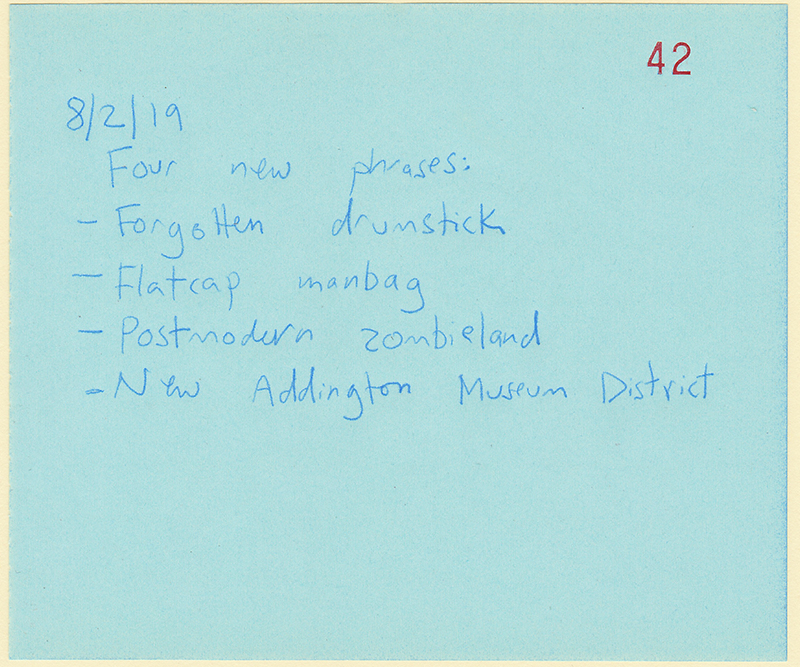 42
8/2/19
Four new phrases:
- Forgotten drumstick
- Flatcap manbag
- Postmodern zombieland
- New Addington Museum District